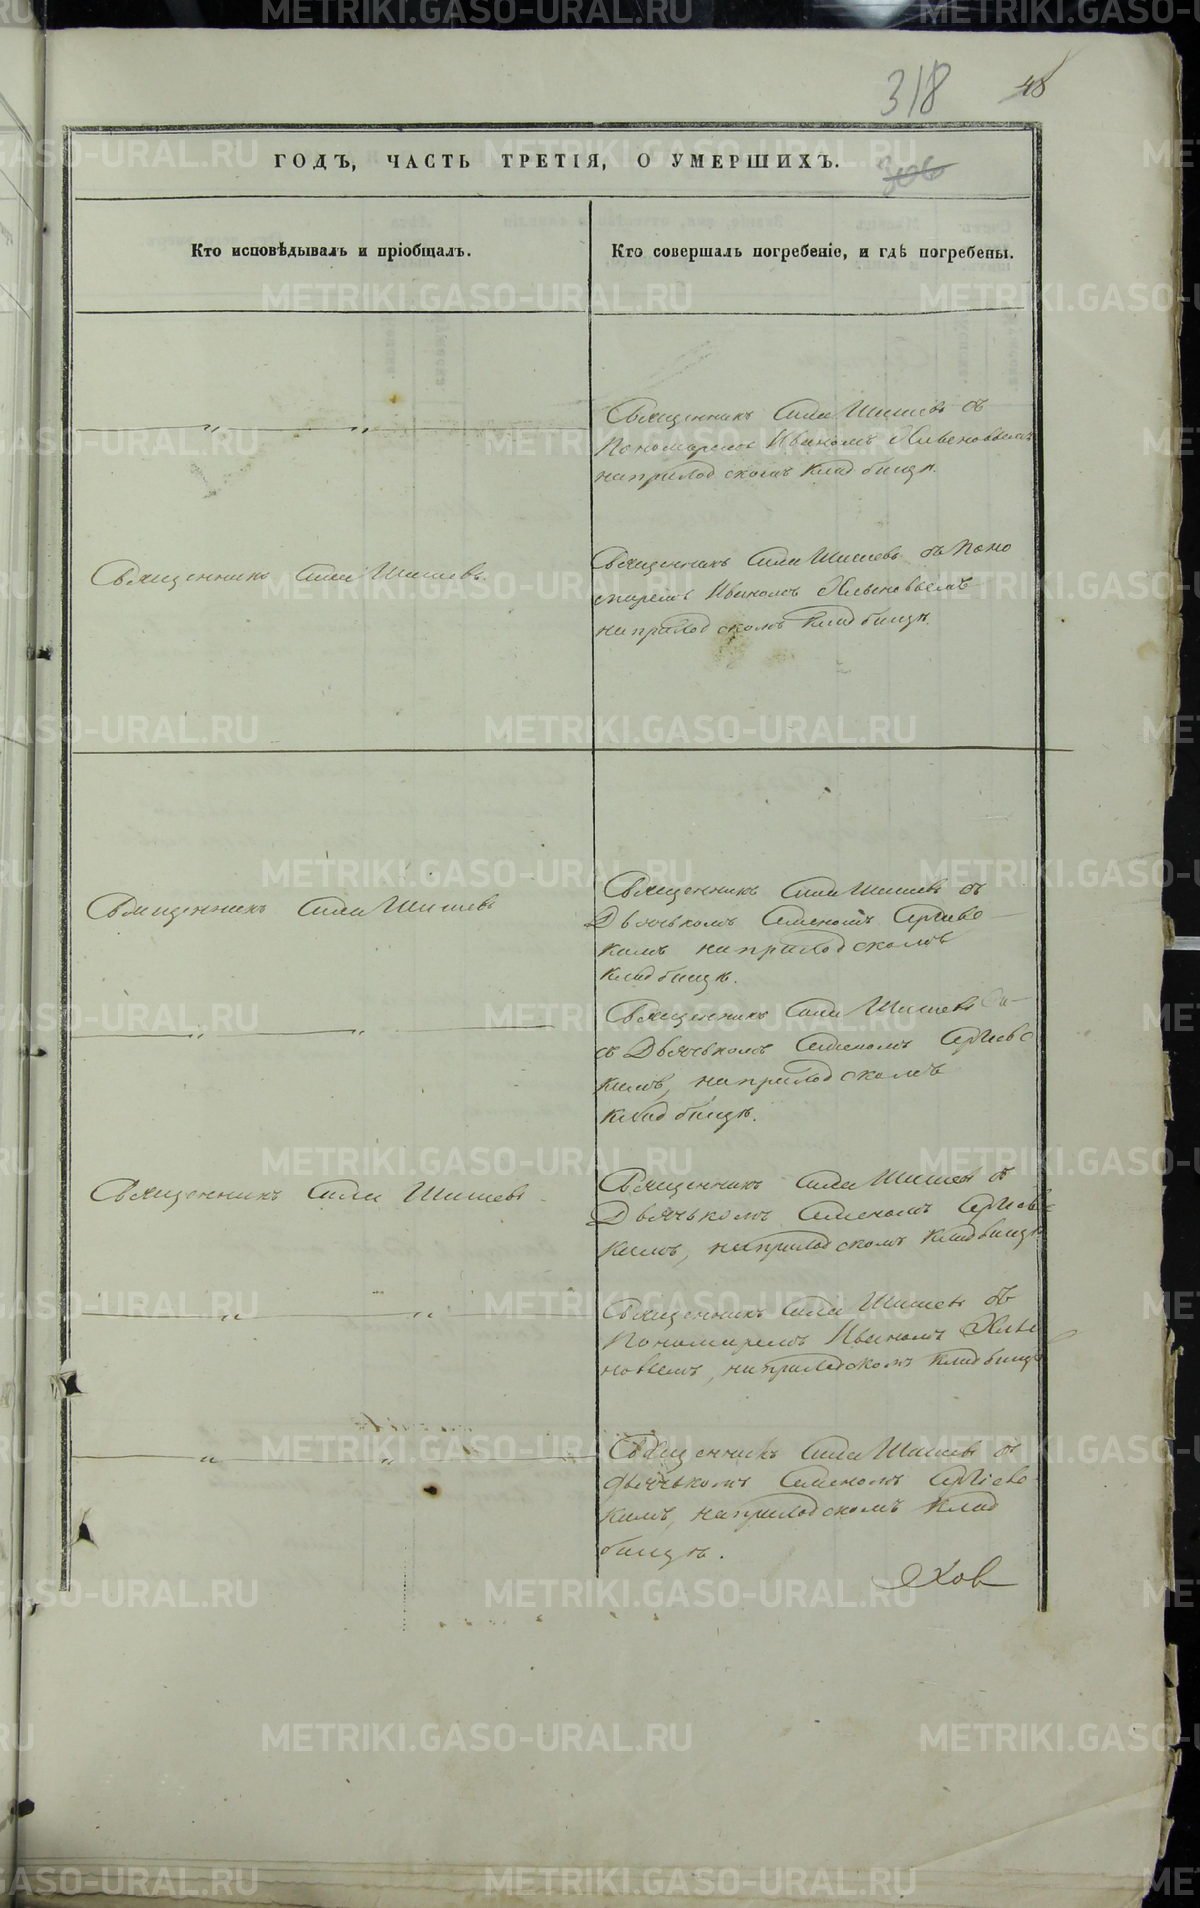 318
48
ГОДЪ, ЧАСТЬ ТРЕТІЯ, О УМЕРШИХЪ.
306
Кто исповѣдывалъ и пріобщалъ.
Кто совершалъ погребеніе, и гдѣ погребены.
Священникъ Сила Шишевъ съ
Пономаремъ Иваномъ
на приходскомъ кладбищѣ.
Священникъ Сила Шишевъ.
Священникъ Сила Шишевъ съ Поно
маремъ Иваномъ
на приходскомъ кладбищѣ.
Священникъ Сила Шишевъ
Священникъ Сила Шишевъ съ
Дьячькомъ Семеномъ Сергіевс
кимъ на приходскомъ
кладбищѣ.
Священникъ Сила Шишевъ
съ Дьячькомъ Семеномъ Сергіевс
кимъ, на приходскомъ
кладбищѣ.
Священникъ Сила Шишевъ
Священникъ Сила Шишевъ съ
Дьячькомъ Семеномъ Сергіевс
кимъ, на приходскомъ кладбищѣ
Священникъ Сила Шишевъ съ
Пономаремъ Иваномъ
на приходскомъ кладбищѣ
Священникъ Сила Шишевъ съ
дьячькомъ Семеномъ Сергіевс
кимъ, на приходскомъ клад
бищѣ.
METRIKI.GASO-URAL.RU